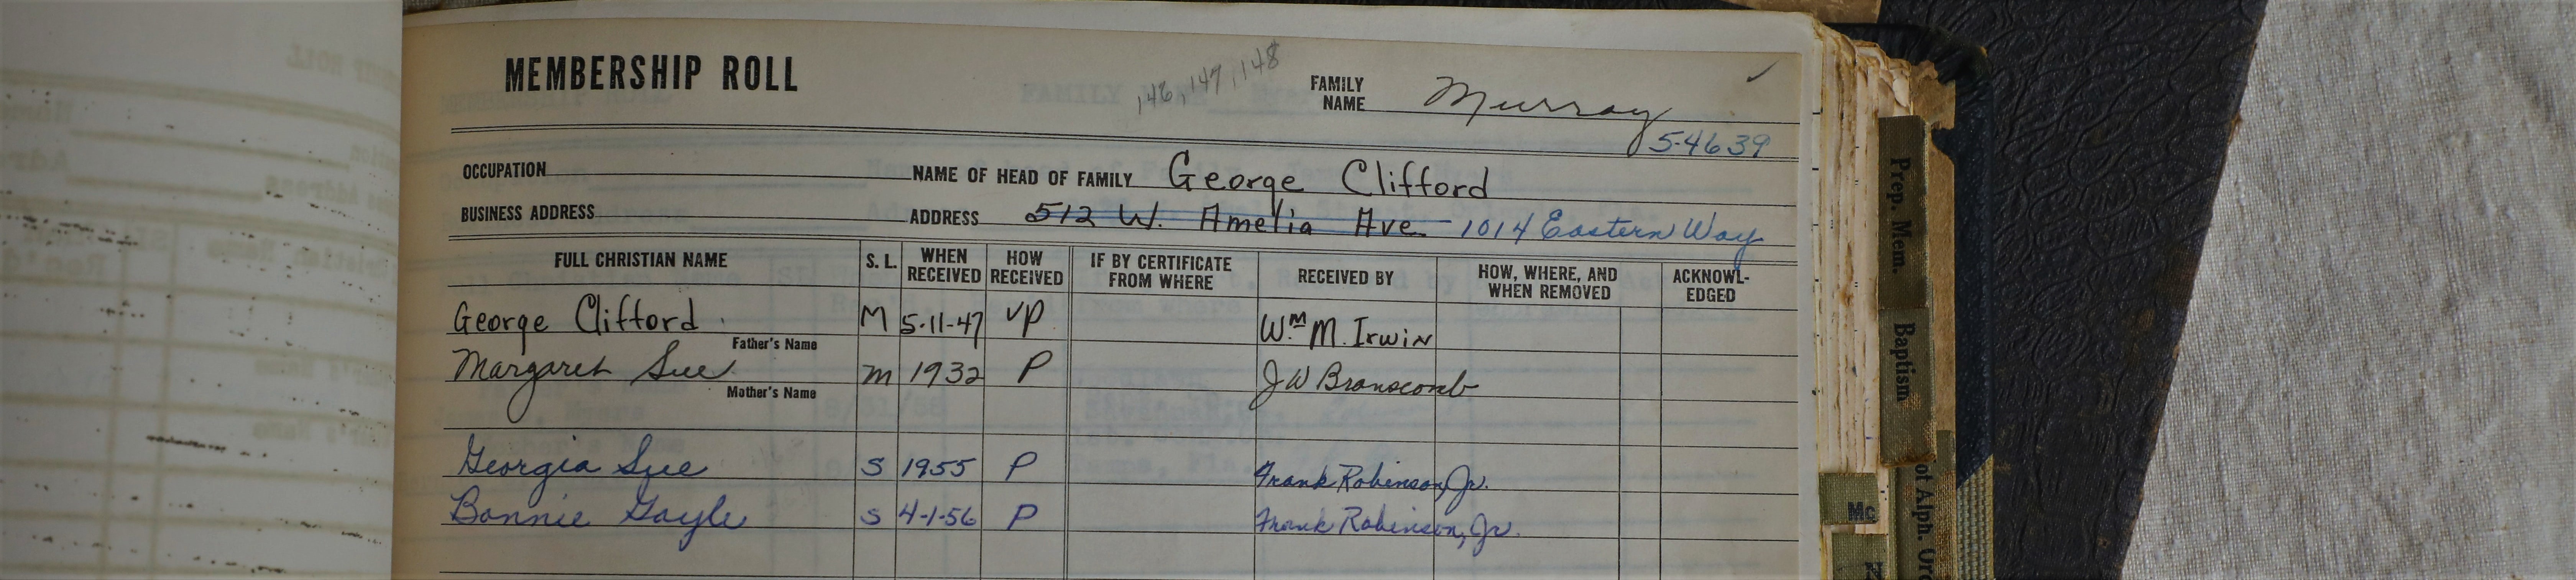 MEMBERSHIP ROLL
146, 147, 148
FAMILY NAME Murray
5-4639
OCCUPATION NAME OF HEAD OF FAMILY George Clifford
BUSINESS ADDRESS ADDRESS 512 W. Amelia Ave. 1014 Eastern Way
FULL CHRISTIAN NAME S. L. WHEN RECEIVED HOW RECEIVED IF BY CERTIFICATE FROM WHERE RECEIVED BY HOW, WHERE, AND WHEN REMOVED ACKNOWL-EDGED
George Clifford M 5-11-47 VP Wm. M. Irwin
Father's Name
Margaret Sue M 1932 P J W Branscomb
Mother's Name
Georgia Sue S 1955 P Frank Robinson, Jr.
Bonnie Gayle S 4-1-56 P Frank Robinson, Jr.
Prep. Mem.
Baptism
ot Alph. Ord
Mc